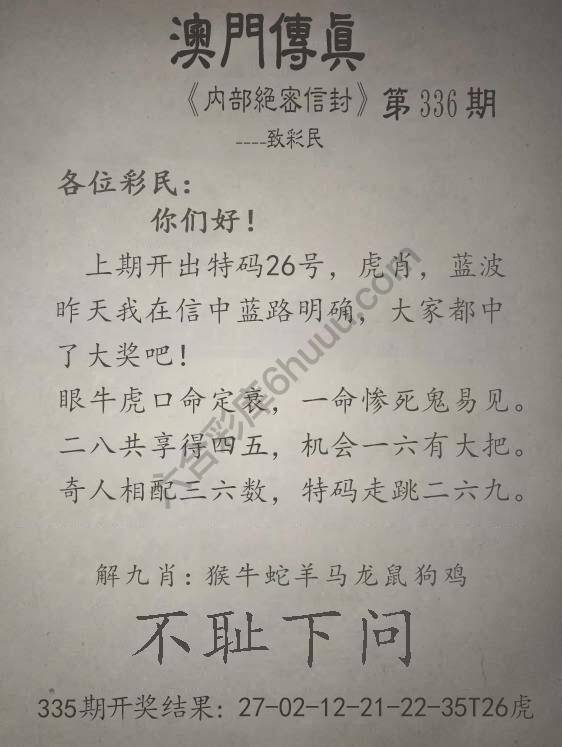 澳門傳眞
《内部絕密信封》第336期
----致彩民
各位彩民：
你们好！
上期开出特码26号，虎肖，蓝波
昨天我在信中蓝路明确，大家都中
了大奖吧！
眼牛虎口命定衰，一命惨死鬼易见。
二八共享得四五，机会一六有大把。
奇人相配三六数，特码走跳二六九。
六合彩库6huuu.com
解九肖：猴牛蛇羊马龙鼠狗鸡
不耻下问
335期开奖结果：27-02-12-21-22-35T26虎